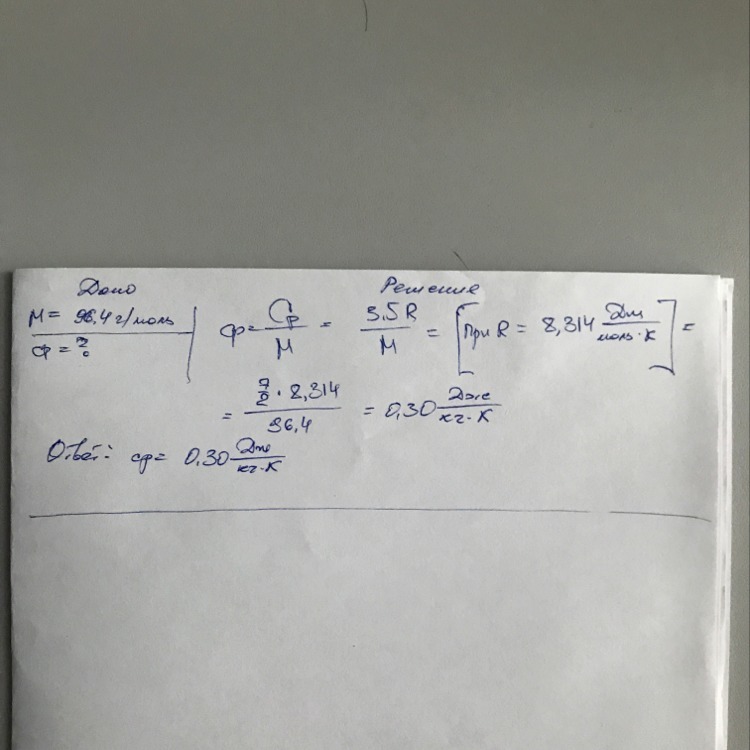 Дано Решение
M = 96,4 г/моль
cp = ?
cp = Cp/M = 3.5R/M = [при R = 8,314 Дж/моль·K] =
= 7/2 · 8,314 / 96,4 = 0,30 Дж/кг·K
Ответ: cp = 0,30 Дж/кг·K